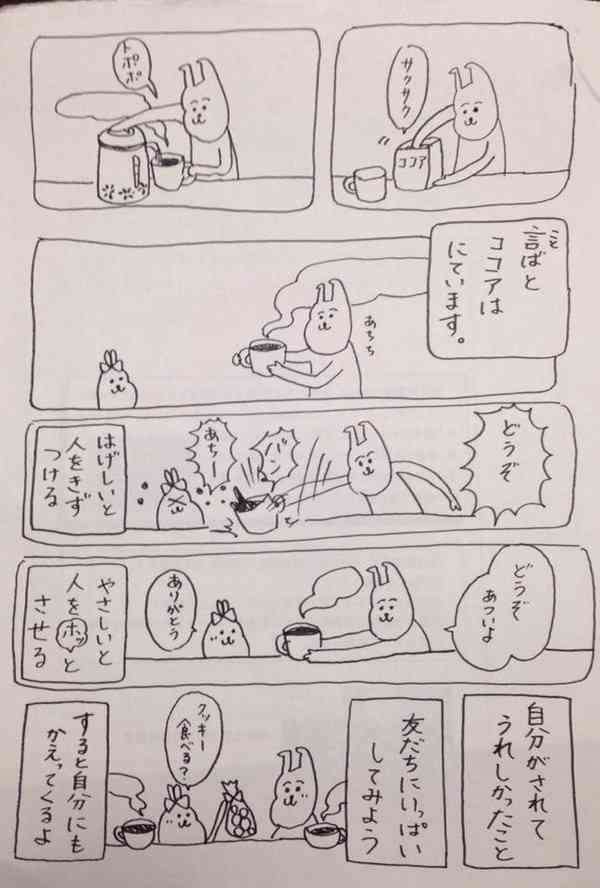 サクサク
ココア
トポポポ
言ばと
こと
ココアは
にています。
あちち
どうぞ
バン
あちー
はげしいと
人をきず
つける
どうぞ
あついよ
ありがとう
やさしいと
人をホッと
させる
自分がされて
うれしかったこと
友だちにいっぱい
してみよう
クッキー
食べる?
すると自分にも
かえってくるよ